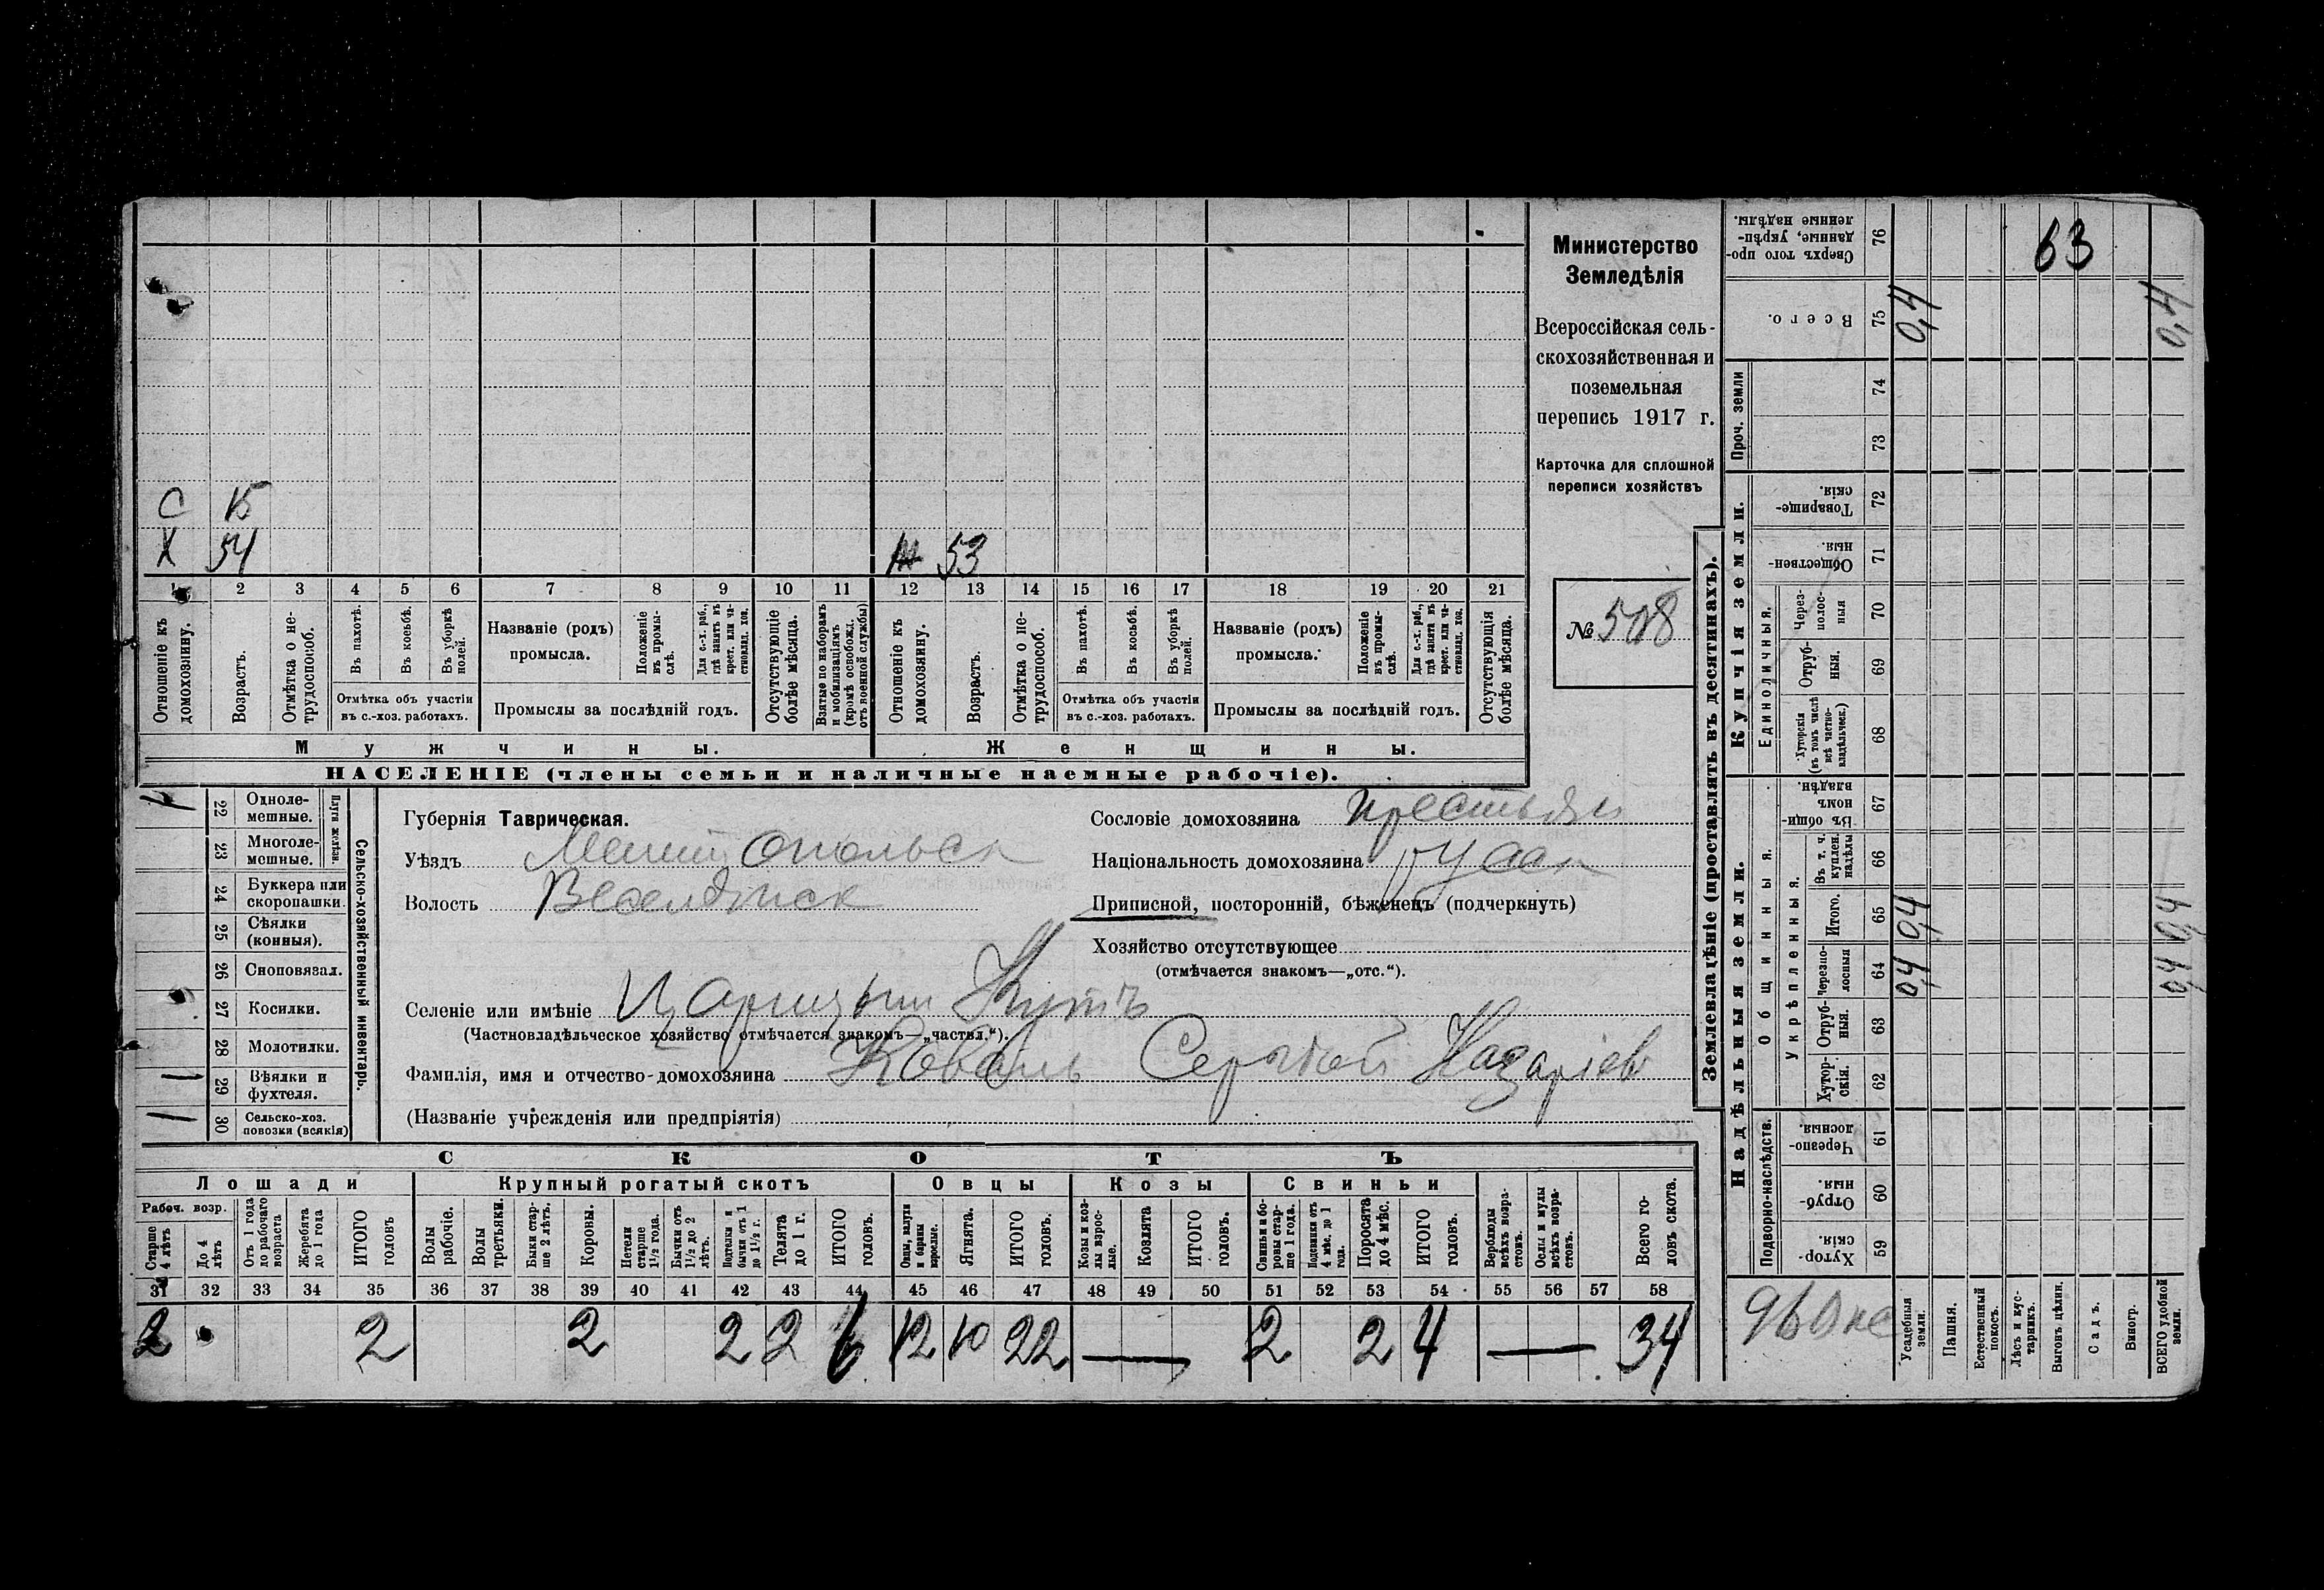 С 15
Х 54 53
1 2 3 4 5 6 7 8 9 10 11 12 13 14 15 16 17 18 19 20 21
Отношеніе къ домохозяину.
Возрастъ.
Отмѣтка о не-трудоспособ.
Въ пахотѣ.
Въ косьбѣ.
Въ уборкѣ полей.
Отмѣтка объ участіи
въ с.-хоз. работахъ.
Названіе (родъ)
промысла.
Положеніе въ промы-слѣ.
Для с.-х. раб., гдѣ занятъ въ крест. или ча-стновлад. хоз.
Промыслы за послѣдній годъ.
Отсутствующіе болѣе мѣсяца.
Взятые по наборамъ и мобилизаціямъ (кромѣ освобожд. отъ военной службы)
Отношеніе къ домохозяину.
Возрастъ.
Отмѣтка о не-трудоспособ.
Въ пахотѣ.
Въ косьбѣ.
Въ уборкѣ полей.
Отмѣтка объ участіи
въ с.-хоз. работахъ.
Названіе (родъ)
промысла.
Положеніе въ промы-слѣ.
Для с.-х. раб., гдѣ занята въ крест. или ча-стновлад. хоз.
Промыслы за послѣдній годъ.
Отсутствующія болѣе мѣсяца.
Мужчины. Женщины.
НАСЕЛЕНІЕ (члены семьи и наличные наемные рабочіе).
Министерство
Земледѣлія
Всероссійская сель-
скохозяйственная и
поземельная
перепись 1917 г.
Карточка для сплошной
переписи хозяйствъ
№ 508
22 Одноле-мешные.
Плуги желѣзн.
23 Многоле-мешные.
24 Буккера или скоропашки.
25 Сѣялки (конныя).
26 Сноповязал.
27 Косилки.
28 Молотилки.
1 29 Вѣялки и фухтеля.
1 30 Сельско-хоз. повозки (всякія)
Сельско-хозяйственный инвентарь.
Губернія Таврическая.
Уѣздъ Мелитопольск
Волость Веселовск
Сословіе домохозяина крестьян
Національность домохозяина русск
Приписной, посторонній, бѣженецъ (подчеркнуть)
Хозяйство отсутствующее
(отмѣчается знакомъ—„отс.“).
Селеніе или имѣніе Царицын Кутъ
(Частновладѣльческое хозяйство отмѣчается знакомъ—„частвл.“).
Фамилія, имя и отчество домохозяина Коваль Сергѣй Назаріев
(Названіе учрежденія или предпріятія)
СКОТЪ
Лошади Крупный рогатый скотъ Овцы Козы Свиньи
Рабоч. возр.
Старше 4 лѣтъ
До 4 лѣтъ
Отъ 1 года до рабочаго возраста
Жеребята до 1 года
ИТОГО головъ
Волы рабочіе.
Волы третьяки.
Быки стар-ше 2 лѣтъ.
Коровы.
Нетели старше 1½ года.
Бычки отъ 1½ до 2 лѣтъ.
Подтелки и бычки отъ 1 до 1½ г.
Телята до 1 г.
ИТОГО головъ.
Овцы, валухи и бараны взрослые.
Ягнята.
ИТОГО головъ.
Козы и коз-лы взрос-лые.
Козлята
ИТОГО головъ.
Свиньи и бо-ровы стар-ше 1 года.
Подсвинки отъ 4 мѣс. до 1 года.
Поросята до 4 мѣс.
ИТОГО головъ.
Верблюды всѣхъ возра-стовъ.
Ослы и мулы всѣхъ возра-стовъ.
Всего го-ловъ скота.
31 32 33 34 35 36 37 38 39 40 41 42 43 44 45 46 47 48 49 50 51 52 53 54 55 56 57 58
2 2 2 2 2 6 12 10 22 — 2 2 4 — 34
Землевладѣніе (проставлять въ десятинахъ).
Надѣльныя земли. Купчія земли. Проч. земли
Подворно-наслѣдств.
Общинныя.
Укрѣпленныя.
Единоличныя.
Хутор-скія. 59
Отруб-ныя. 60
Черезпо-лосныя. 61
Хутор-скія. 62
Отруб-ныя. 63
Черезпо-лосныя 64
Итого. 65
Въ т. ч. куплен. надѣлы 66
Въ общин-номъ владѣн. 67
Хуторскія (въ томъ числѣ всѣ частно-владѣльческ.) 68
Отруб-ныя. 69
Через-полос-ныя 70
Обществен-ныя. 71
Товарище-скія. 72
73
74
Всего. 75
Сверхъ того про-данные, укрѣп-ленные надѣлы. 76
63
Усадебныя земли. 0,4 0,4 0,4
Пашня.
Естественный покосъ.
Лѣсъ и кус-тарникъ.
Выгонъ цѣлин.
Садъ.
Виногр.
ВСЕГО удобной земли. 0,4 0,4 0,4